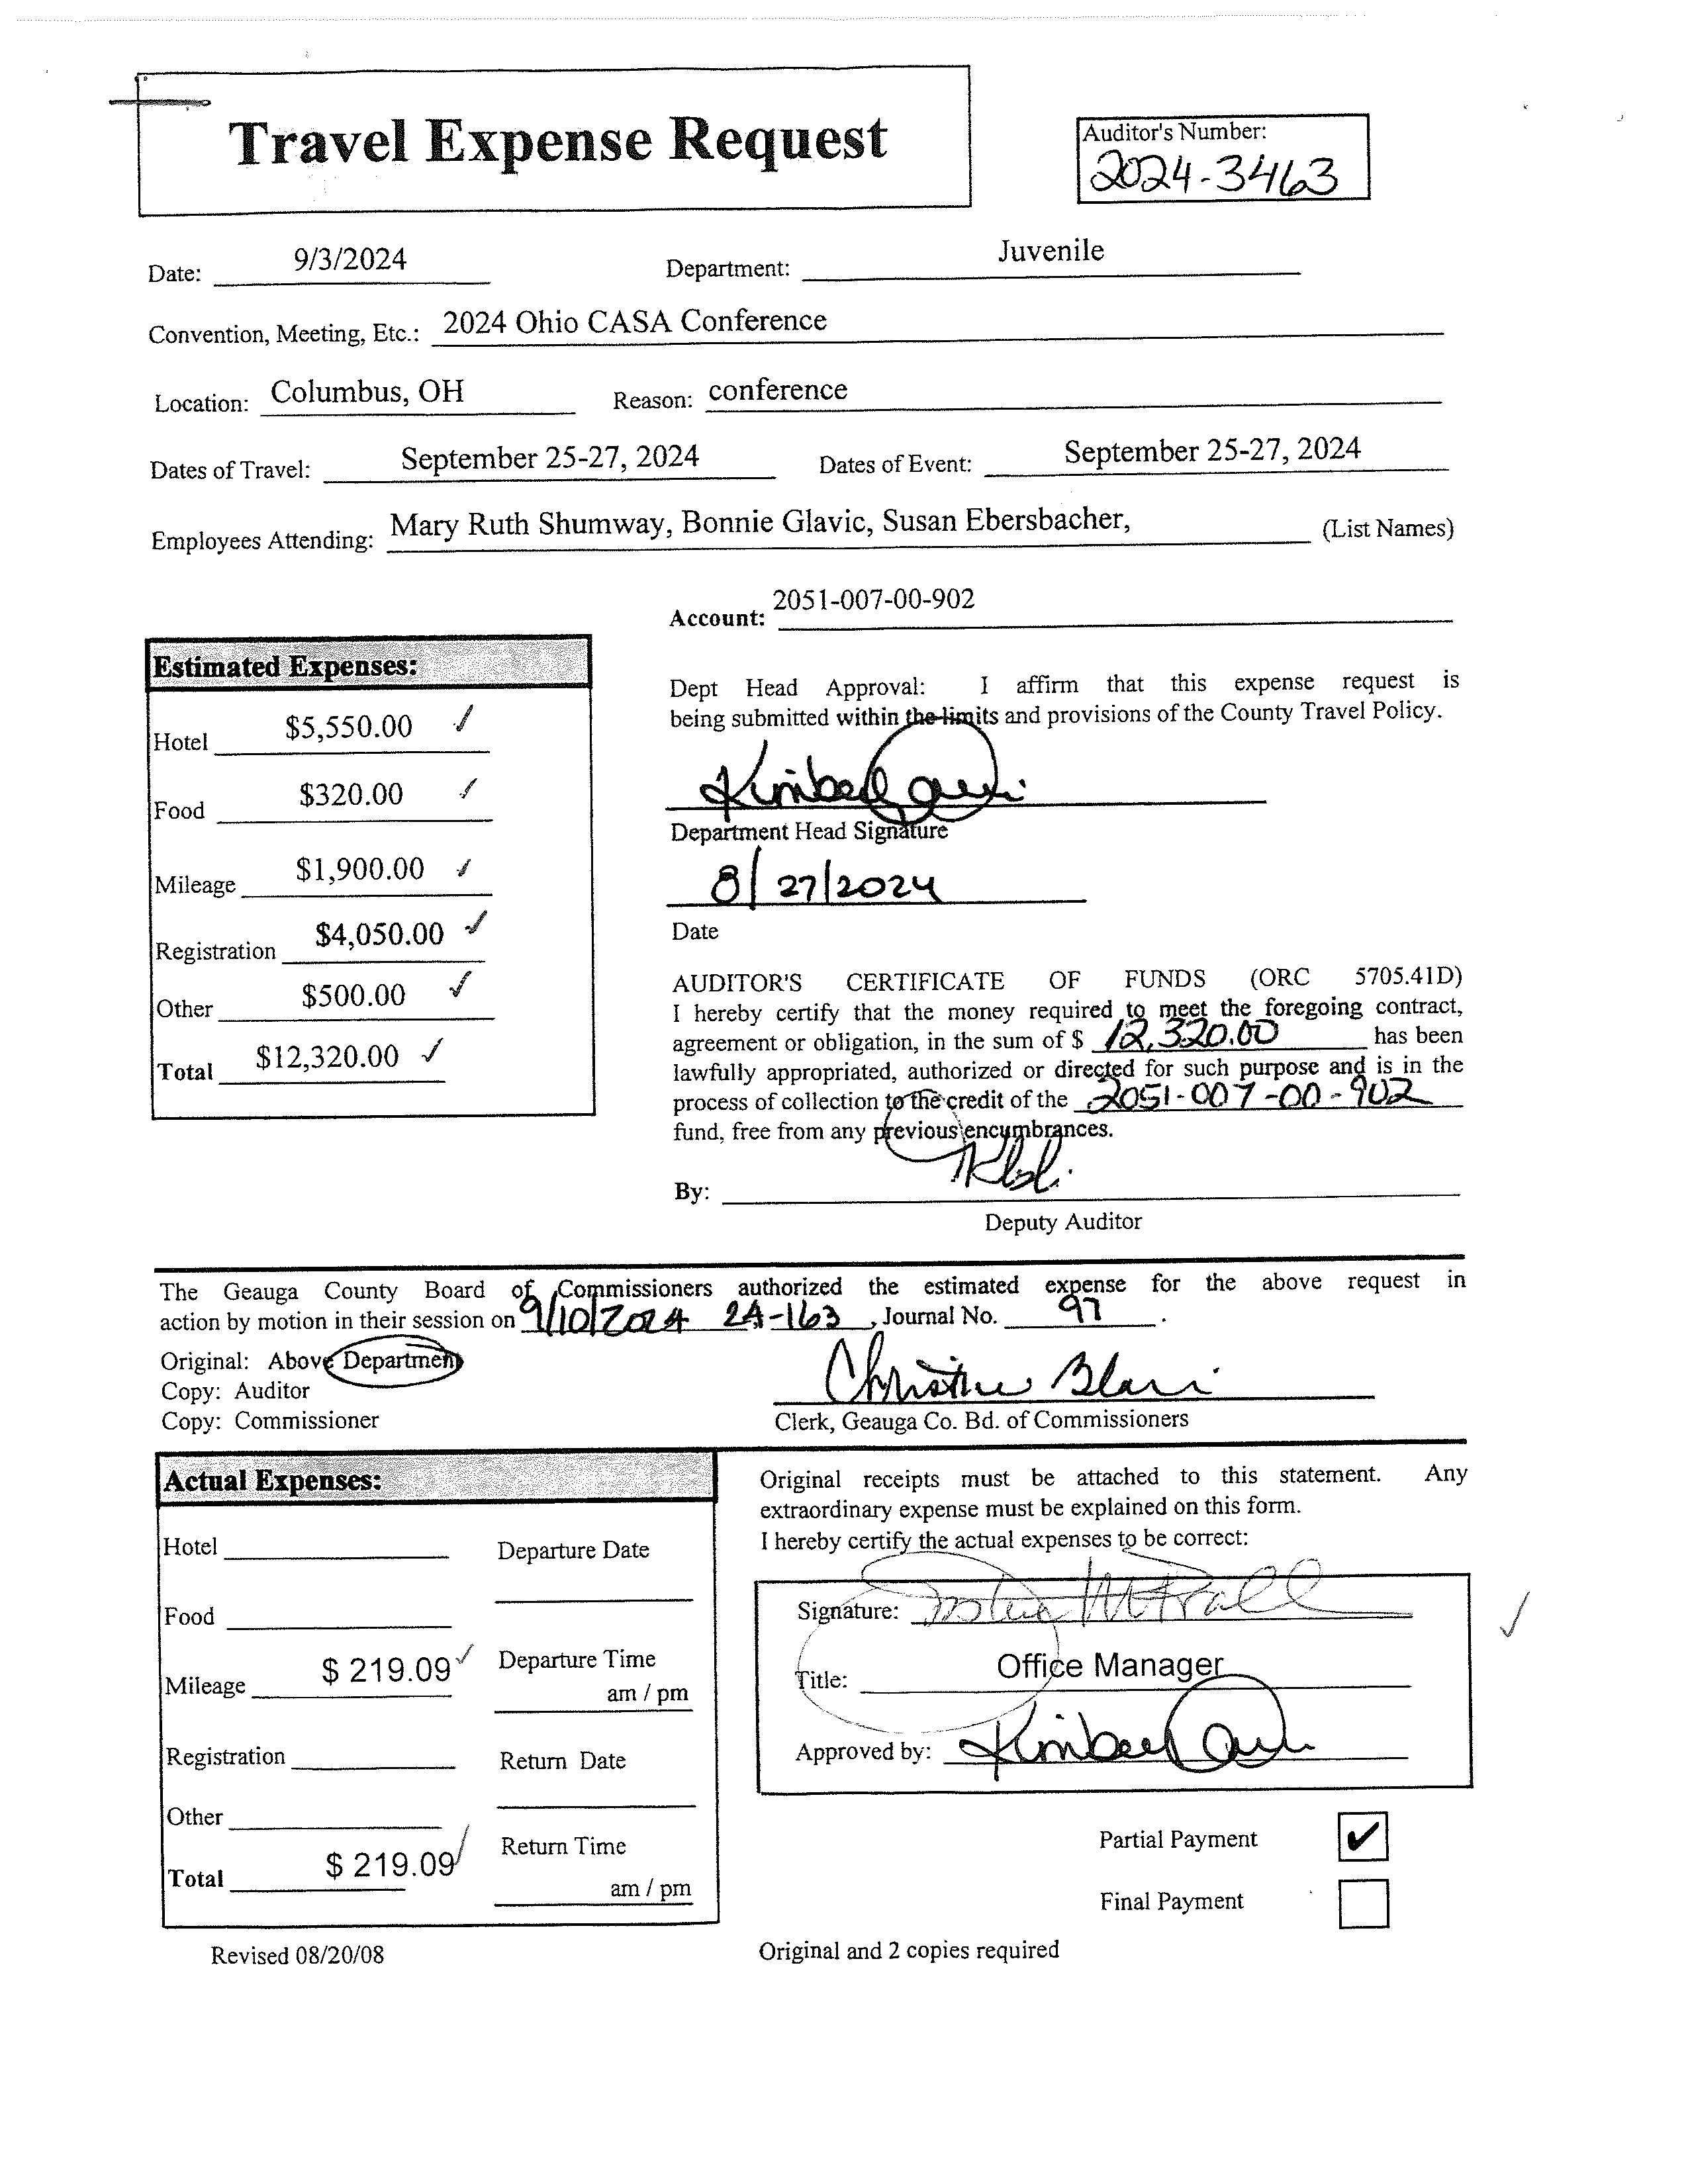 Travel Expense Request
Auditor's Number:
2024-3463
Date: 9/3/2024 Department: Juvenile
Convention, Meeting, Etc.: 2024 Ohio CASA Conference
Location: Columbus, OH Reason: conference
Dates of Travel: September 25-27, 2024 Dates of Event: September 25-27, 2024
Employees Attending: Mary Ruth Shumway, Bonnie Glavic, Susan Ebersbacher, (List Names)
Account: 2051-007-00-902
Estimated Expenses:
Hotel $5,550.00 ✓
Food $320.00 ✓
Mileage $1,900.00 ✓
Registration $4,050.00 ✓
Other $500.00 ✓
Total $12,320.00 ✓
Dept Head Approval: I affirm that this expense request is
being submitted within the limits and provisions of the County Travel Policy.
Department Head Signature
8/27/2024
Date
AUDITOR'S CERTIFICATE OF FUNDS (ORC 5705.41D)
I hereby certify that the money required to meet the foregoing contract,
agreement or obligation, in the sum of $ 12,320.00 has been
lawfully appropriated, authorized or directed for such purpose and is in the
process of collection to the credit of the 2051-007-00-902
fund, free from any previous encumbrances.
By:
Deputy Auditor
The Geauga County Board of Commissioners authorized the estimated expense for the above request in
action by motion in their session on 9/10/2024 24-163, Journal No. 97.
Original: Above Department
Copy: Auditor
Copy: Commissioner
Christine Blair
Clerk, Geauga Co. Bd. of Commissioners
Actual Expenses:
Hotel
Food
Mileage $ 219.09 ✓
Registration
Other
Total $ 219.09 ✓
Departure Date
Departure Time
am / pm
Return Date
Return Time
am / pm
Original receipts must be attached to this statement. Any
extraordinary expense must be explained on this form.
I hereby certify the actual expenses to be correct:
Signature:
Title: Office Manager
Approved by:
✓
Partial Payment ✔
Final Payment
Revised 08/20/08
Original and 2 copies required